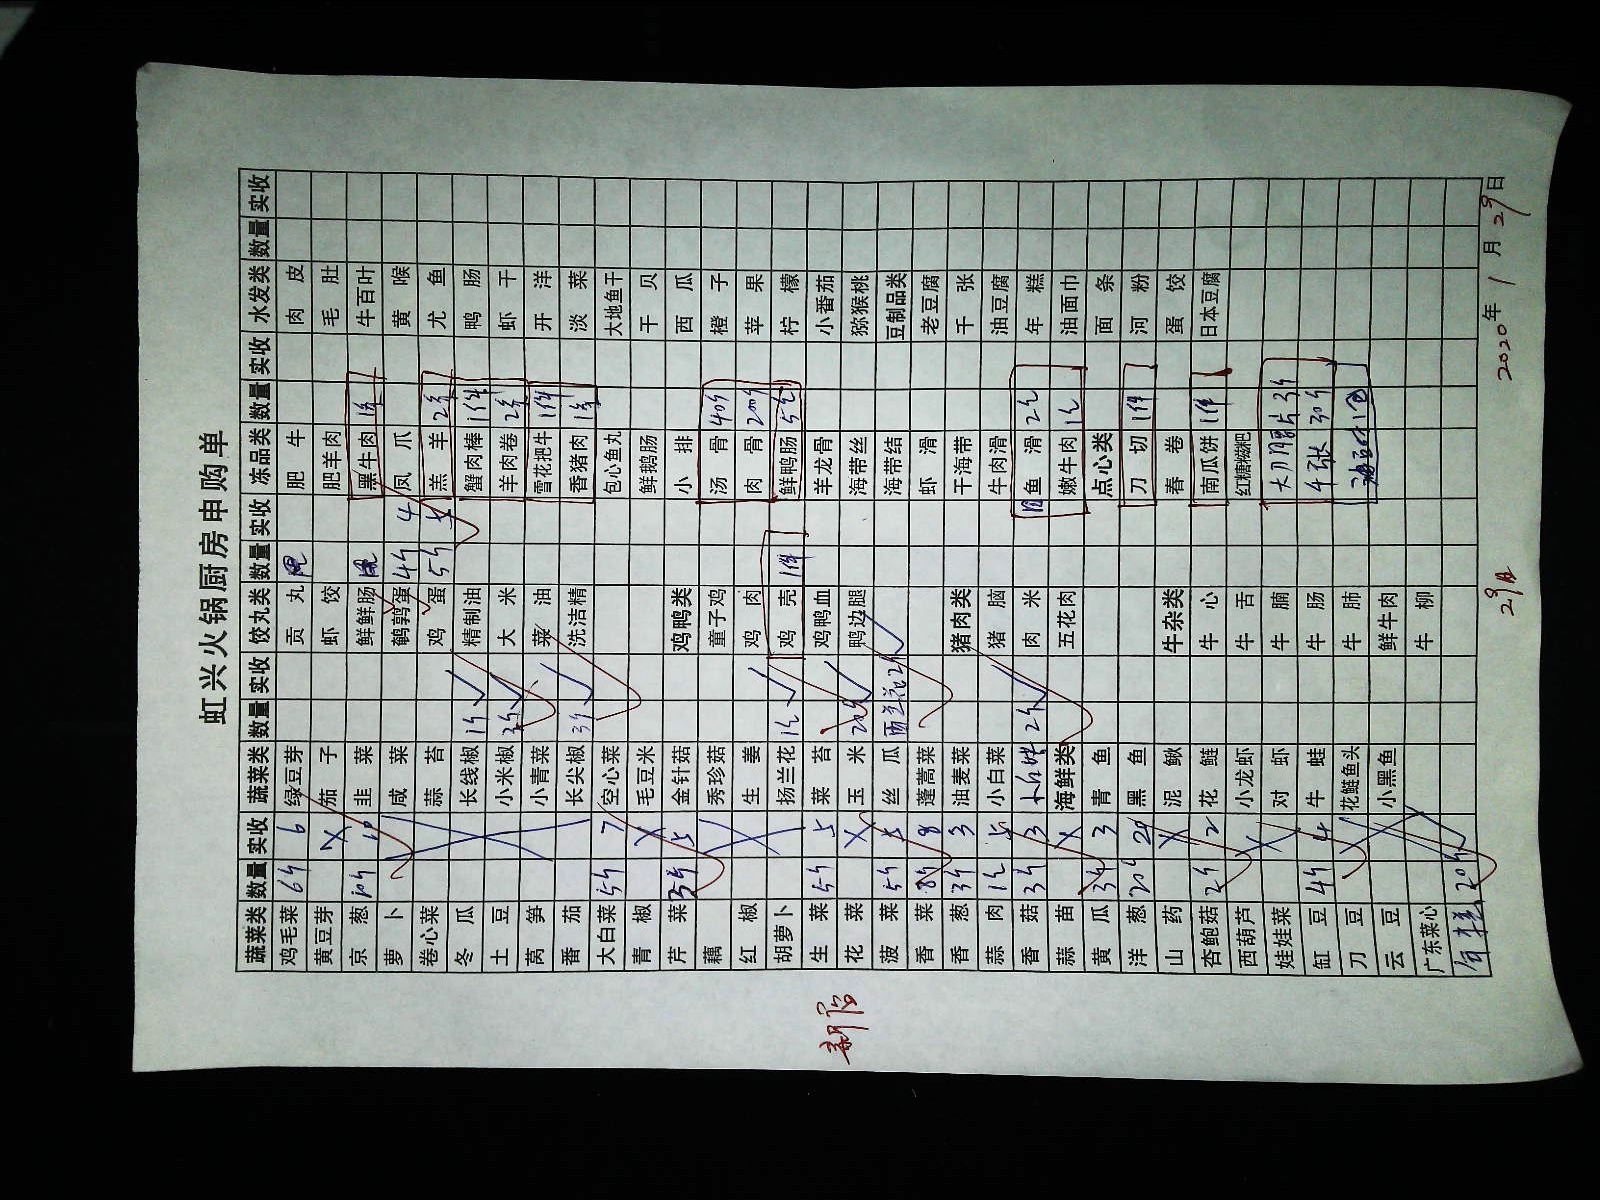 虹兴火锅厨房申购单
蔬菜类 数量 实收 蔬菜类 数量 实收 饺丸类 数量 实收 冻品类 数量 实收 水发类 数量 实收
鸡毛菜 6斤 6 绿豆芽 贡丸 肥牛 肉皮
黄豆芽 茄子 虾饺 肥羊肉 毛肚
京葱 10斤 10 韭菜 鲜鲜肠 黑牛肉 牛百叶
萝卜 咸菜 鹌鹑蛋 4斤 4 凤爪 黄喉
卷心菜 蒜苔 鸡蛋 5斤 5 羔羊 尤鱼
冬瓜 长线椒 1斤 精制油 蟹肉棒 1件 鸭肠
土豆 小米椒 大米 羊肉卷 虾干
莴笋 小青菜 菜油 雪花把牛 1件 开洋
番茄 长尖椒 3斤 洗洁精 香猪肉 淡菜
大白菜 5斤 7 空心菜 包心鱼丸 大地鱼干
青椒 毛豆米 鲜鹅肠 干贝
芹菜 5 金针菇 鸡鸭类 小排 西瓜
藕 秀珍菇 童子鸡 汤骨 40斤 橙子
红椒 生姜 鸡肉 肉骨 200斤 苹果
胡萝卜 扬兰花 鸡壳 1件 鲜鸭肠 柠檬
生菜 5斤 5 菜苔 鸡鸭血 羊龙骨 小番茄
花菜 玉米 20斤 鸭边腿 海带丝 猕猴桃
菠菜 5斤 5 丝瓜 西兰花 海带结 豆制品类
香菜 8斤 8 蓬蒿菜 虾滑 老豆腐
香葱 3斤 3 油麦菜 猪肉类 干海带 千张
蒜肉 5 小白菜 猪脑 牛肉滑 油豆腐
香菇 3斤 3 2斤 肉米 鱼滑 年糕
蒜苗 海鲜类 五花肉 嫩牛肉 油面巾
黄瓜 3斤 3 青鱼 点心类 面条
洋葱 20斤 20 黑鱼 刀切 1件 河粉
山药 泥鳅 牛杂类 春卷 蛋饺
杏鲍菇 2斤 2 花鲢 牛心 南瓜饼 1件 日本豆腐
西葫芦 小龙虾 牛舌 红糖糍粑
娃娃菜 对虾 牛腩
缸豆 4斤 4 牛蛙 牛肠 千张 30斤
刀豆 花鲢鱼头 牛肺
云豆 小黑鱼 鲜牛肉
广东菜心 牛柳
年糕 20斤
新店
29日
2020年1月29日